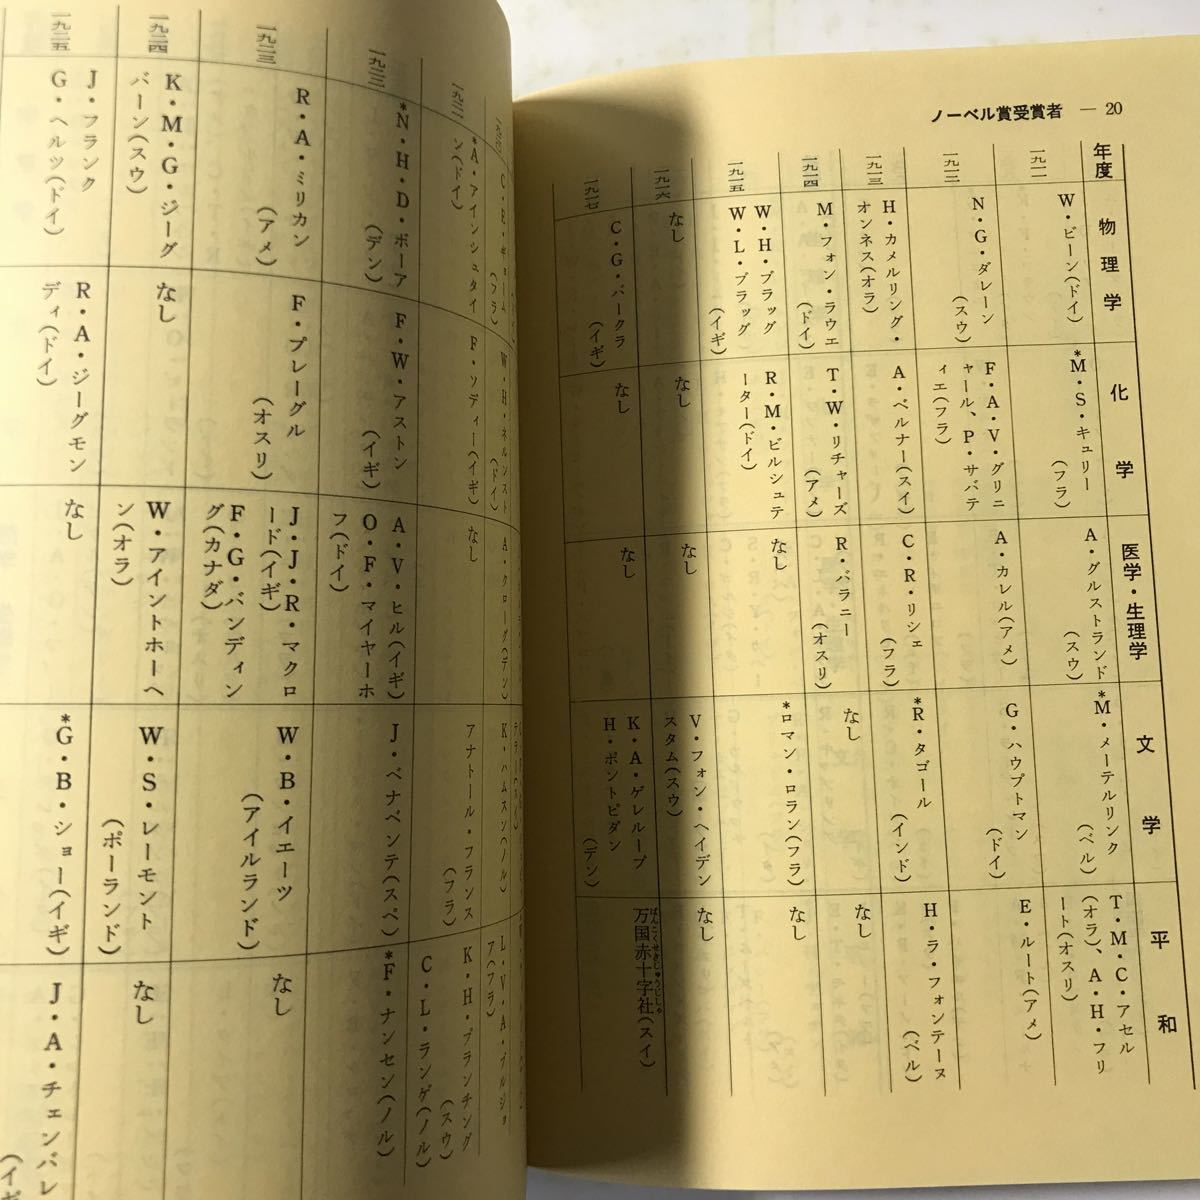 ノーベル賞受賞者 — 20
年度
物理学
化学
医学・生理学
文学
平和
一九一一
W・ビーン(ドイ)
*M・S・キュリー
(フラ)
A・グルストランド
(スウ)
*M・メーテルリンク
(ベル)
T・M・C・アセル
(オラ)、A・H・フリ
ート(オスリ)
一九一二
N・G・ダレーン
(スウ)
F・A・V・グリニ
ャール、P・サバテ
ィエ(フラ)
A・カレル(アメ)
G・ハウプトマン
(ドイ)
E・ルート(アメ)
一九一三
H・カメルリング・
オンネス(オラ)
A・ベルナー(スイ)
C・R・リシェ
(フラ)
*R・タゴール
(インド)
H・ラ・フォンテーヌ
(ベル)
一九一四
M・フォン・ラウエ
(ドイ)
T・W・リチャーズ
(アメ)
R・バラニー
(オスリ)
なし
なし
一九一五
W・H・ブラッグ
W・L・ブラッグ
(イギ)
R・M・ビルシュテ
ーター(ドイ)
なし
*ロマン・ロラン(フラ)
なし
一九一六
なし
なし
なし
V・フォン・ヘイデン
スタム(スウ)
なし
一九一七
C・G・バークラ
(イギ)
なし
なし
K・A・ゲレループ
H・ポントピダン
(デン)
万国赤十字社(スイ)
ばんこくせきじゅうじしゃ
一九二〇
C・E・ギョーム
(フラ)
W・H・ネルンスト
(ドイ)
A・クローグ(デン)
K・ハムスン(ノル)
L・V・A・ブルジョ
ア(フラ)
一九二一
*A・アインシュタイ
ン(ドイ)
F・ソディー(イギ)
なし
アナトール・フランス
(フラ)
K・H・ブランチング
(スウ)
C・L・ランゲ(ノル)
一九二二
*N・H・D・ボーア
(デン)
F・W・アストン
(イギ)
A・V・ヒル(イギ)
O・F・マイヤーホ
フ(ドイ)
J・ベナベンテ(スペ)
*F・ナンセン(ノル)
一九二三
R・A・ミリカン
(アメ)
F・プレーグル
(オスリ)
J・J・R・マクロ
ード(イギ)
F・G・バンディン
グ(カナダ)
W・B・イエーツ
(アイルランド)
なし
一九二四
K・M・G・ジーグ
バーン(スウ)
なし
W・アイントホーヘ
ン(オラ)
W・S・レーモント
(ポーランド)
なし
一九二五
J・フランク
G・ヘルツ(ドイ)
R・A・ジーグモン
ディ(ドイ)
なし
*G・B・ショー(イギ)
J・A・チェンバレ